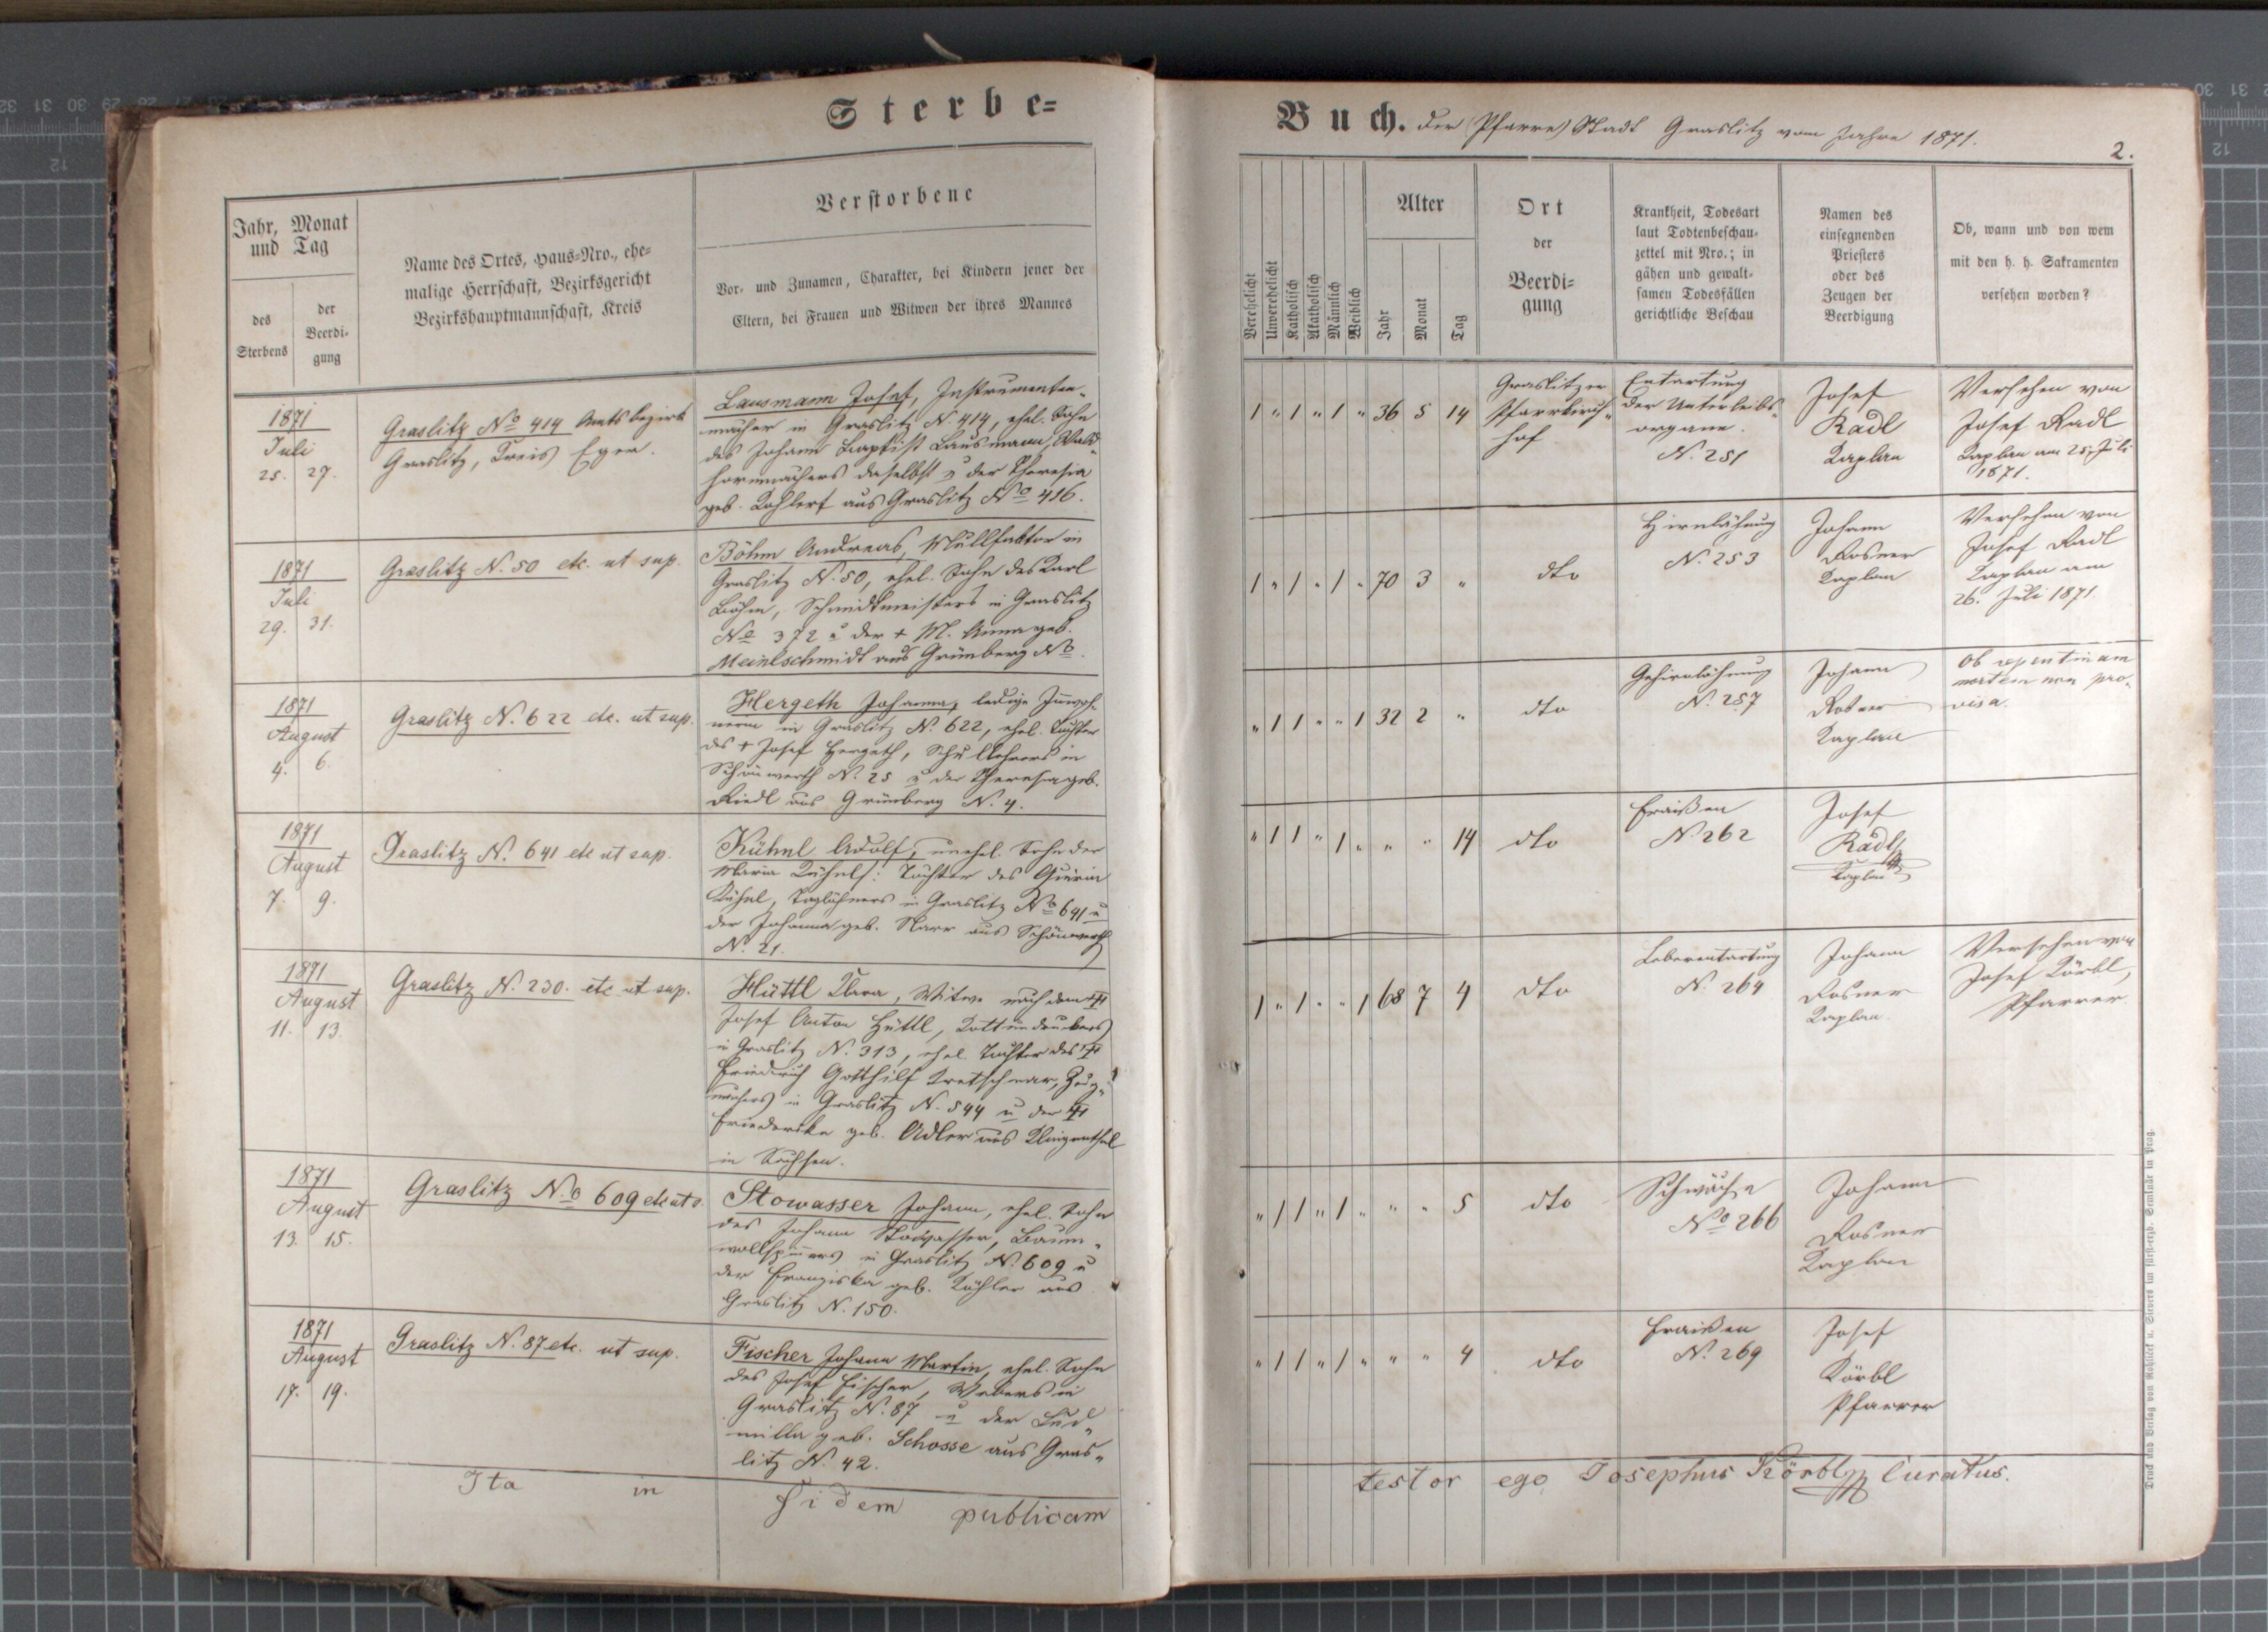 Sterbe-
Jahr, Monat
und Tag
des
Sterbens
der
Beerdi-
gung
Name des Ortes, Haus-Nro., ehe-
malige Herrschaft, Bezirksgericht
Bezirkshauptmannschaft, Kreis
Verstorbene
Vor- und Zunamen, Charakter, bei Kindern jener der
Eltern, bei Frauen und Witwen der ihres Mannes
1871
Juli
25. 27.
Graslitz No 414 Amtsbezirk
Graslitz, Kreis Eger.
Lausmann Josef, Instrumenten-
macher in Graslitz N. 414, ehel. Sohn
des Johann Baptist Lausmann, Wald-
hornmachers daselbst u der Theresia
geb. Kohlert aus Graslitz No 416.
1871
Juli
29. 31.
Graslitz N. 50 etc. ut sup.
Böhm Andreas, Mullfaktor in
Graslitz N. 50, ehel. Sohn des Karl
Böhm, Schmidtmeisters in Graslitz
No 372 u der + M. Anna geb.
Meinlschmidt aus Grünberg No
1871
August
4. 6.
Graslitz N. 622 etc. ut sup.
Hergeth Johanna, ledige Inwoh-
nerin in Graslitz N. 622, ehel. Tochter
des + Josef Hergeth, Schullehrers in
Schönwerth N. 25 u der Theresia geb.
Riedl aus Grünberg N. 4.
1871
August
7. 9.
Graslitz N. 641 etc ut sup.
Kühnl Adolf, unehel. Sohn der
Maria Kühnl: Tochter des Quirin
Kühnl, Taglöhners in Graslitz No 641 u
der Johanna geb. Narr aus Schönwerth
N. 21.
1871
August
11. 13.
Graslitz N. 230. etc ut sup.
Hüttl Klara, Witwe nach dem +
Josef Anton Hüttl, Kottondruckers
in Graslitz N. 313, ehel. Tochter des +
Friedrich Gotthilf Kretschmar, Zeug-
machers in Graslitz N. 544 u der +
Friedericka geb. Adler aus Klingenthal
in Sachsen.
1871
August
13. 15.
Graslitz No 609 etc ut s.
Stowasser Johann, ehel. Sohn
des Johann Stowasser, Baum-
wollspinners in Graslitz N. 609 u
der Franziska geb. Köhler aus
Graslitz N. 150.
1871
August
17. 19.
Graslitz N. 87 etc. ut sup.
Fischer Johann Martin, ehel. Sohn
des Josef Fischer, Webers in
Graslitz N. 87 u der Lud-
milla geb. Schosse aus Gras-
litz N. 42.
Ita in fidem publicam
Buch. der Pfarre Stadt Graslitz vom Jahre 1871.
2.
Verehelicht
Unverehelicht
Katholisch
Akatholisch
Männlich
Weiblich
Alter
Jahr
Monat
Tag
Ort
der
Beerdi-
gung
Krankheit, Todesart
laut Todtenbeschau-
zettel mit Nro.; in
gähen und gewalt-
samen Todesfällen
gerichtliche Beschau
Namen des
einsegnenden
Priesters
oder des
Zeugen der
Beerdigung
Ob, wann und von wem
mit den h. h. Sakramenten
versehen worden?
1 " 1 " 1 " 36 5 14
Graslitzer
Pfarrkirch-
hof
Entartung
der Unterleibs-
organe.
N. 251
Josef
Radl
Kaplan
Versehen von
Josef Radl
Kaplan am 25. Juli
1871.
1 " 1 " 1 " 70 3 "
dto
Hirnlähmung
N. 253
Johann
Rosner
Kaplan
Versehen von
Josef Radl
Kaplan am
26. Juli 1871.
" 1 1 " " 1 32 2 "
dto
Gehirnlähmung
N. 257
Johann
Rosner
Kaplan
Ob repentinam
mortem non pro-
visa.
" 1 1 " 1 " " " 14
dto
Fraißen
N. 262
Josef
Radl
Kaplan
1 " 1 " " 1 68 7 4
dto
Leberentartung
N. 264
Johann
Rosner
Kaplan.
Versehen von
Josef Körbl,
Pfarrer.
" 1 1 " 1 " " " 5
dto
Schwäche
No 266
Johann
Rosner
Kaplan
" 1 1 " 1 " " " 4
dto
Fraißen
N. 269
Josef
Körbl
Pfarrer
testor ego Josephus Körbl Curatus.
Druck und Verlag von Rohliček u. Sievers im fürst-erzb. Seminär in Prag.